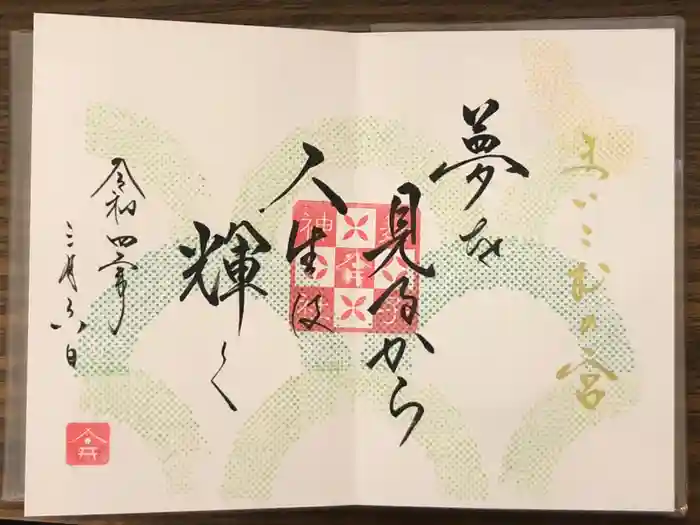 まいこむの宮
夢を
見るから
人生は
輝く
令和四年
三月六日